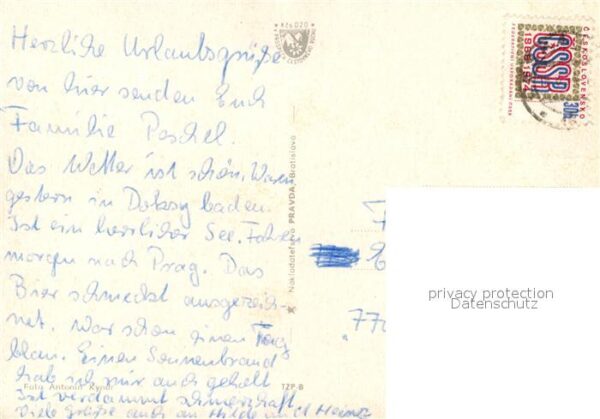 Herzliche Urlaubsgrüße
von hier senden Euch
Familie Paschel.
Das Wetter ist schön. Waren
gestern in Doksy baden.
Ist ein herrlicher See. Fahren
morgen nach Prag. Das
Bier schmeckt ausgezeich-
net. War schon einen Tag
blau. Einen Sonnenbrand
hab ich mir auch geholt
Ist verdammt schmerzhaft
Viele Grüße auch an Hilde u. Heinz
Foto Antonín
TZP-8
Nakladateľstvo PRAVDA, Bratislava
ČESKOSLOVENSKO
ČSSR
1969 1974
30h
privacy protection
Datenschutz